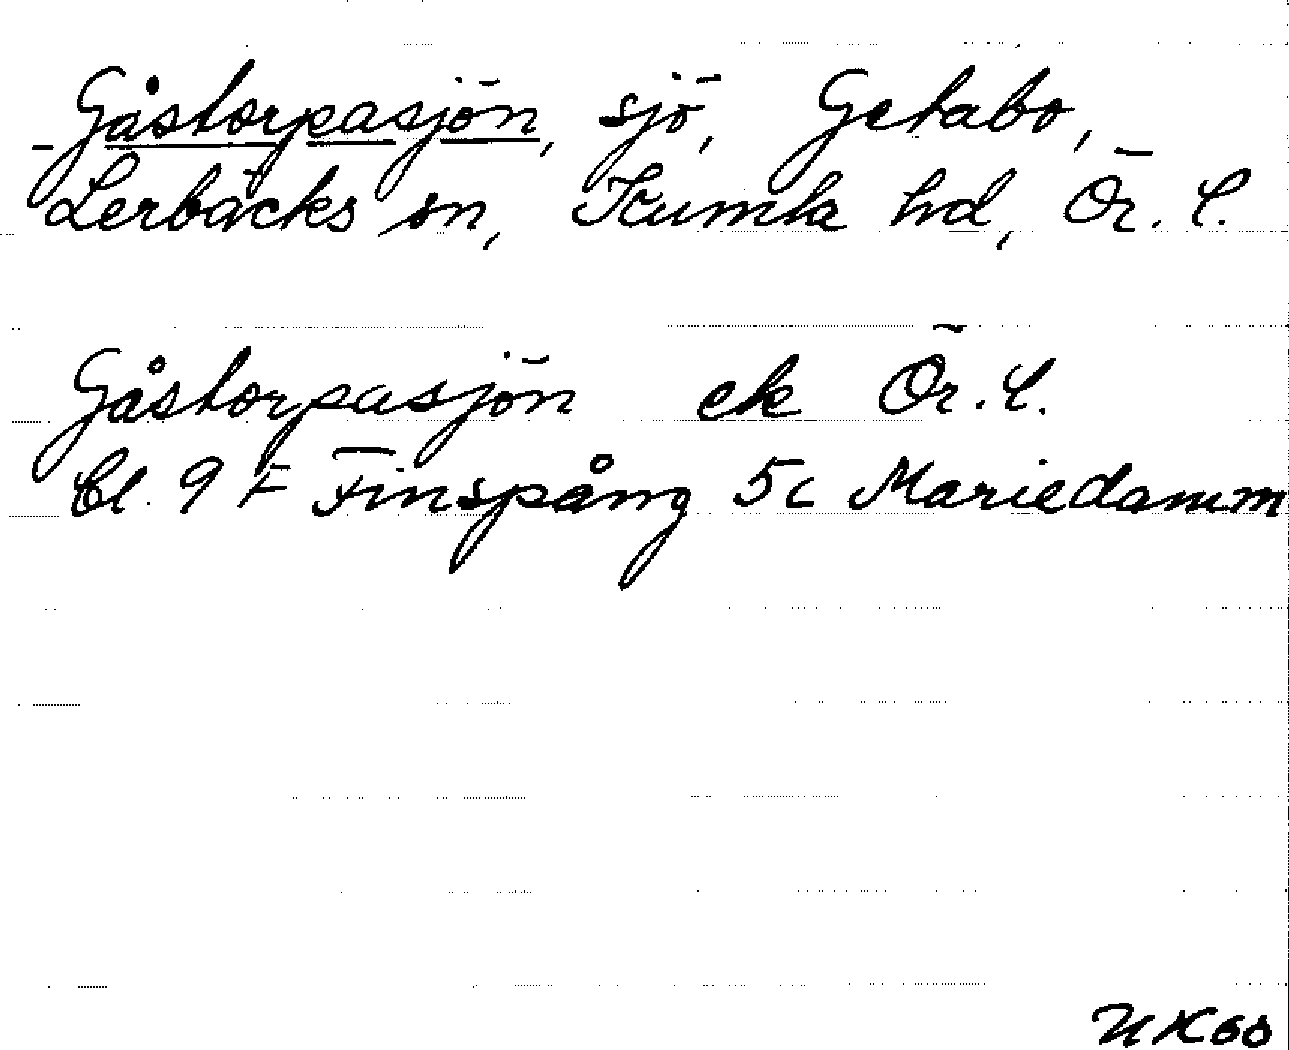 Gåstorpasjön, sjö, Getabo,
Lerbäcks sn, Kumla hd, Ör. l.
Gåstorpasjön ek Ör. l.
Bl. 9 F Finspång 5c Mariedamm
NK60